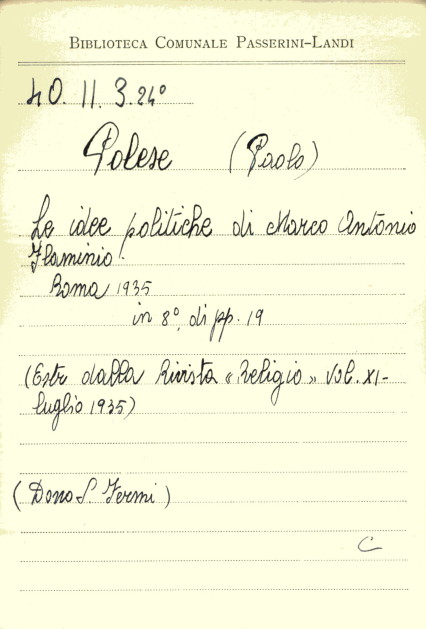 BIBLIOTECA COMUNALE PASSERINI-LANDI
40. II. 3. 24°
Polese (Paolo)
Le idee politiche di Marco Antonio
Flaminio.
Roma 1935
in 8°, di pp. 19
(Estr dalla Rivista «Religio» Vol. XI-
luglio 1935)
(Dono S. Fermi)
C